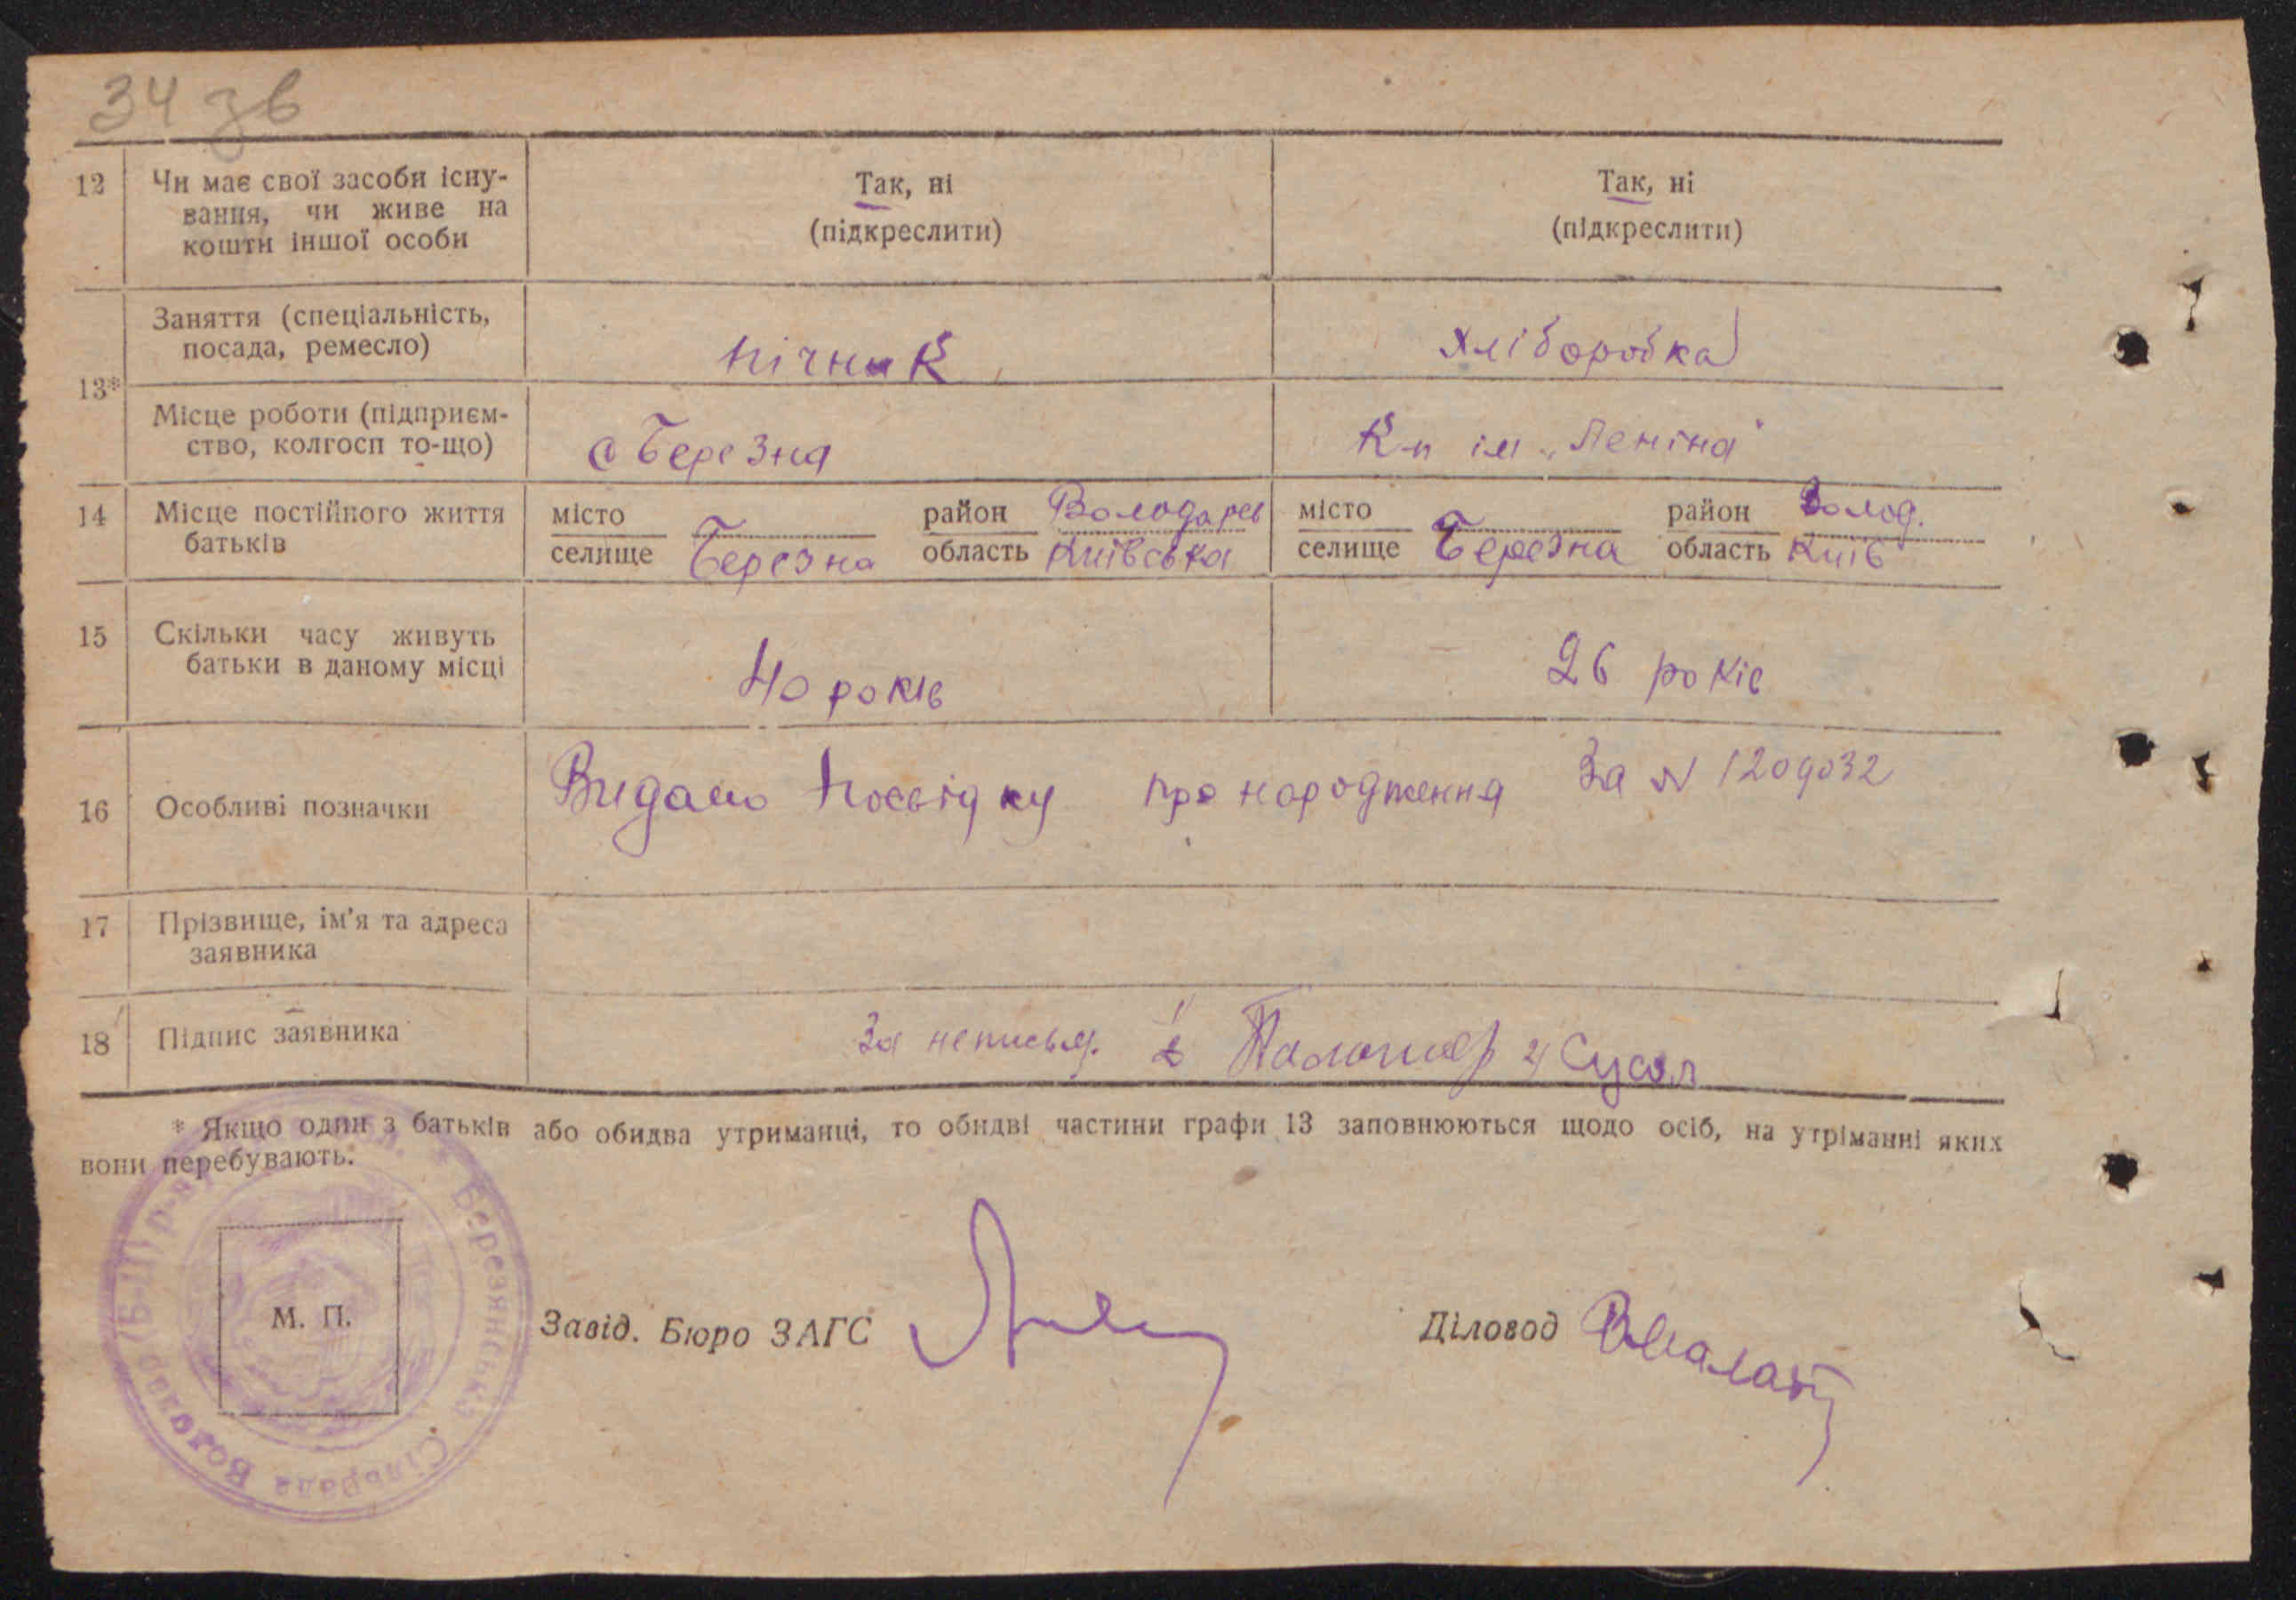 34 зв
12 Чи має свої засоби існу- Так, ні Так, ні
вання, чи живе на (підкреслити) (підкреслити)
кошти іншої особи
Заняття (спеціальність, пічник хліборобка
посада, ремесло)
13*
Місце роботи (підприєм- с Березна К-п ім „Леніна"
ство, колгосп то-що)
14 Місце постійного життя місто район Володарсь місто район Волод.
батьків селище Березна область Київська селище Березна область Київ
15 Скільки часу живуть 40 років 26 років
батьки в даному місці
16 Особливі позначки Видано посвідку про народження За N 1209032
17 Прізвище, ім'я та адреса
заявника
18 Підпис заявника За неписьм.
* Якщо один з батьків або обидва утриманці, то обидві частини графи 13 заповнюються щодо осіб, на утріманні яких
вони перебувають.
Березянська Сільрада
М. П.
Завід. Бюро ЗАГС
Діловод